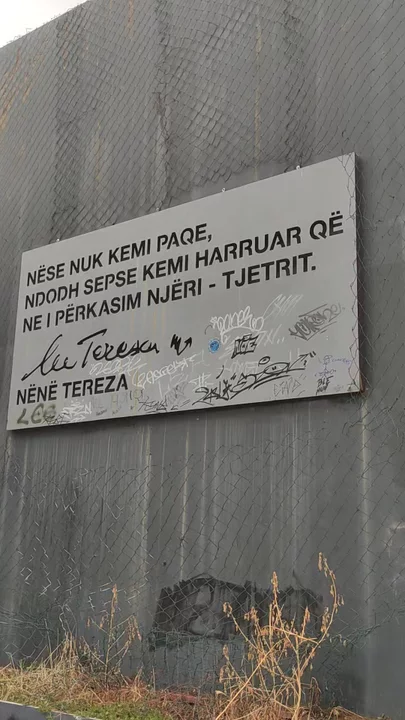 NËSE NUK KEMI PAQE,
NDODH SEPSE KEMI HARRUAR QË
NE I PËRKASIM NJËRI - TJETRIT.
Teresa
NËNË TEREZA